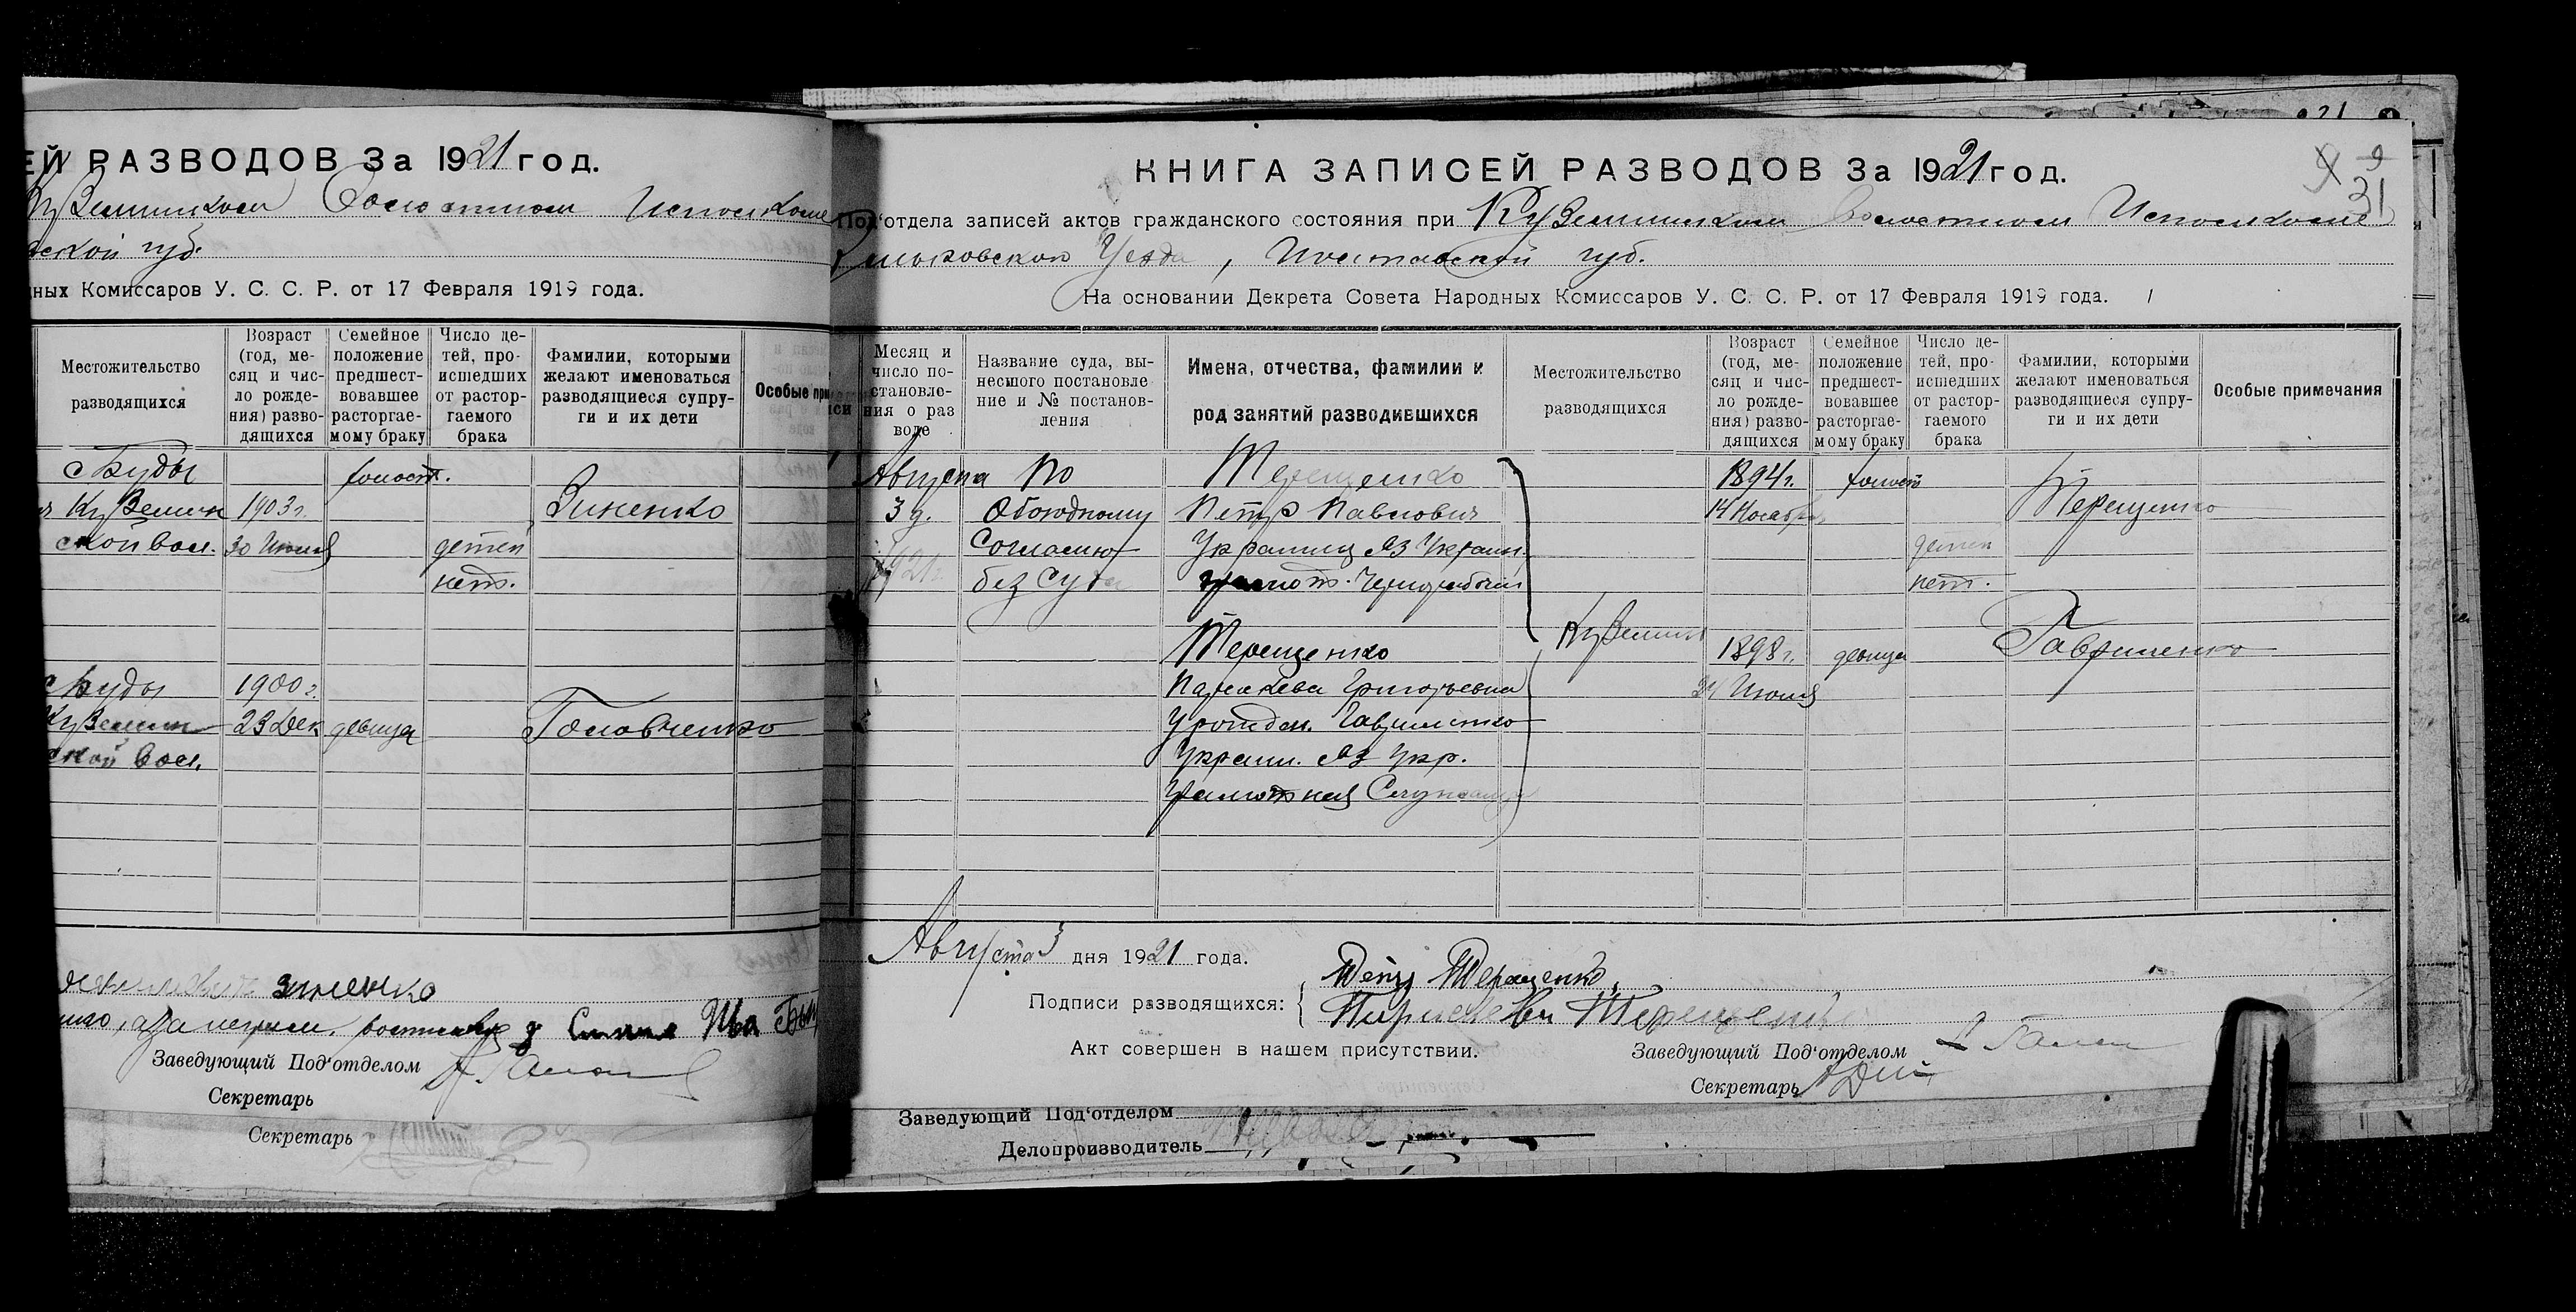 ЕЙ РАЗВОДОВ За 1921 год.
Куземинском Волостном Исполкоме
ской губ.
ных Комиссаров У. С. С. Р. от 17 Февраля 1919 года.
Местожительство разводящихся
Возраст (год, ме-
сяц и чис-
ло рожде-
ния) разво-
дящихся
Семейное
положение
предшест-
вовавшее
расторгае-
мому браку
Число де-
тей, про-
исшедших
от растор-
гаемого
брака
Фамилии, которыми
желают именоваться
разводящиеся супру-
ги и их дети
Особые при
с Буды
Куземин
ской вол.
1903 г.
30 Июля
холост.
детей
нет.
Зиненко
с Буды
Куземин
ской вол.
1900 г.
23 Дек
девица
Головченко
зиненко
Заведующий Под'отделом
Секретарь
Секретарь
КНИГА ЗАПИСЕЙ РАЗВОДОВ За 1921 год.
9
31
Под'отдела записей актов гражданского состояния при Куземинском Волостном Исполкоме
уезда, Полтавской губ.
На основании Декрета Совета Народных Комиссаров У. С. С. Р. от 17 Февраля 1919 года.
Месяц и
число по-
становле-
ния о раз
воде
Название суда, вы-
несшого постановле
ние и № постанов-
ления
Имена, отчества, фамилии и
род занятий разводившихся
Местожительство
разводящихся
Возраст
(год, ме-
сяц и чис-
ло рожде-
ния) разво-
дящихся
Семейное
положение
предшест-
вовавшее
расторгае-
мому браку
Число де-
тей, про-
исшедших
от растор-
гаемого
брака
Фамилии, которыми
желают именоваться
разводящиеся супру-
ги и их дети
Особые примечания
Августа
3 д.
1921 г.
По
Обоюдному
Согласию
без суда
Терещенко
Петр Павлович
Украинец яз Украин.
грамот. Чернорабочий
Куземин
1894 г.
14 Ноября
холост
детей
нет.
Терещенко
Терещенко
Параскева Григорьевна
урожден. Гавриленко
Украин. яз укр.
грамотная Служащая
1898 г.
Июля
девица
Гавриленко
Августа 3 дня 1921 года.
Подписи разводящихся:
Петр Терещенко
Параскева Терещенко
Акт совершен в нашем присутствии.
Заведующий Под'отделом
Секретарь
Заведующий Под'отделом
Делопроизводитель